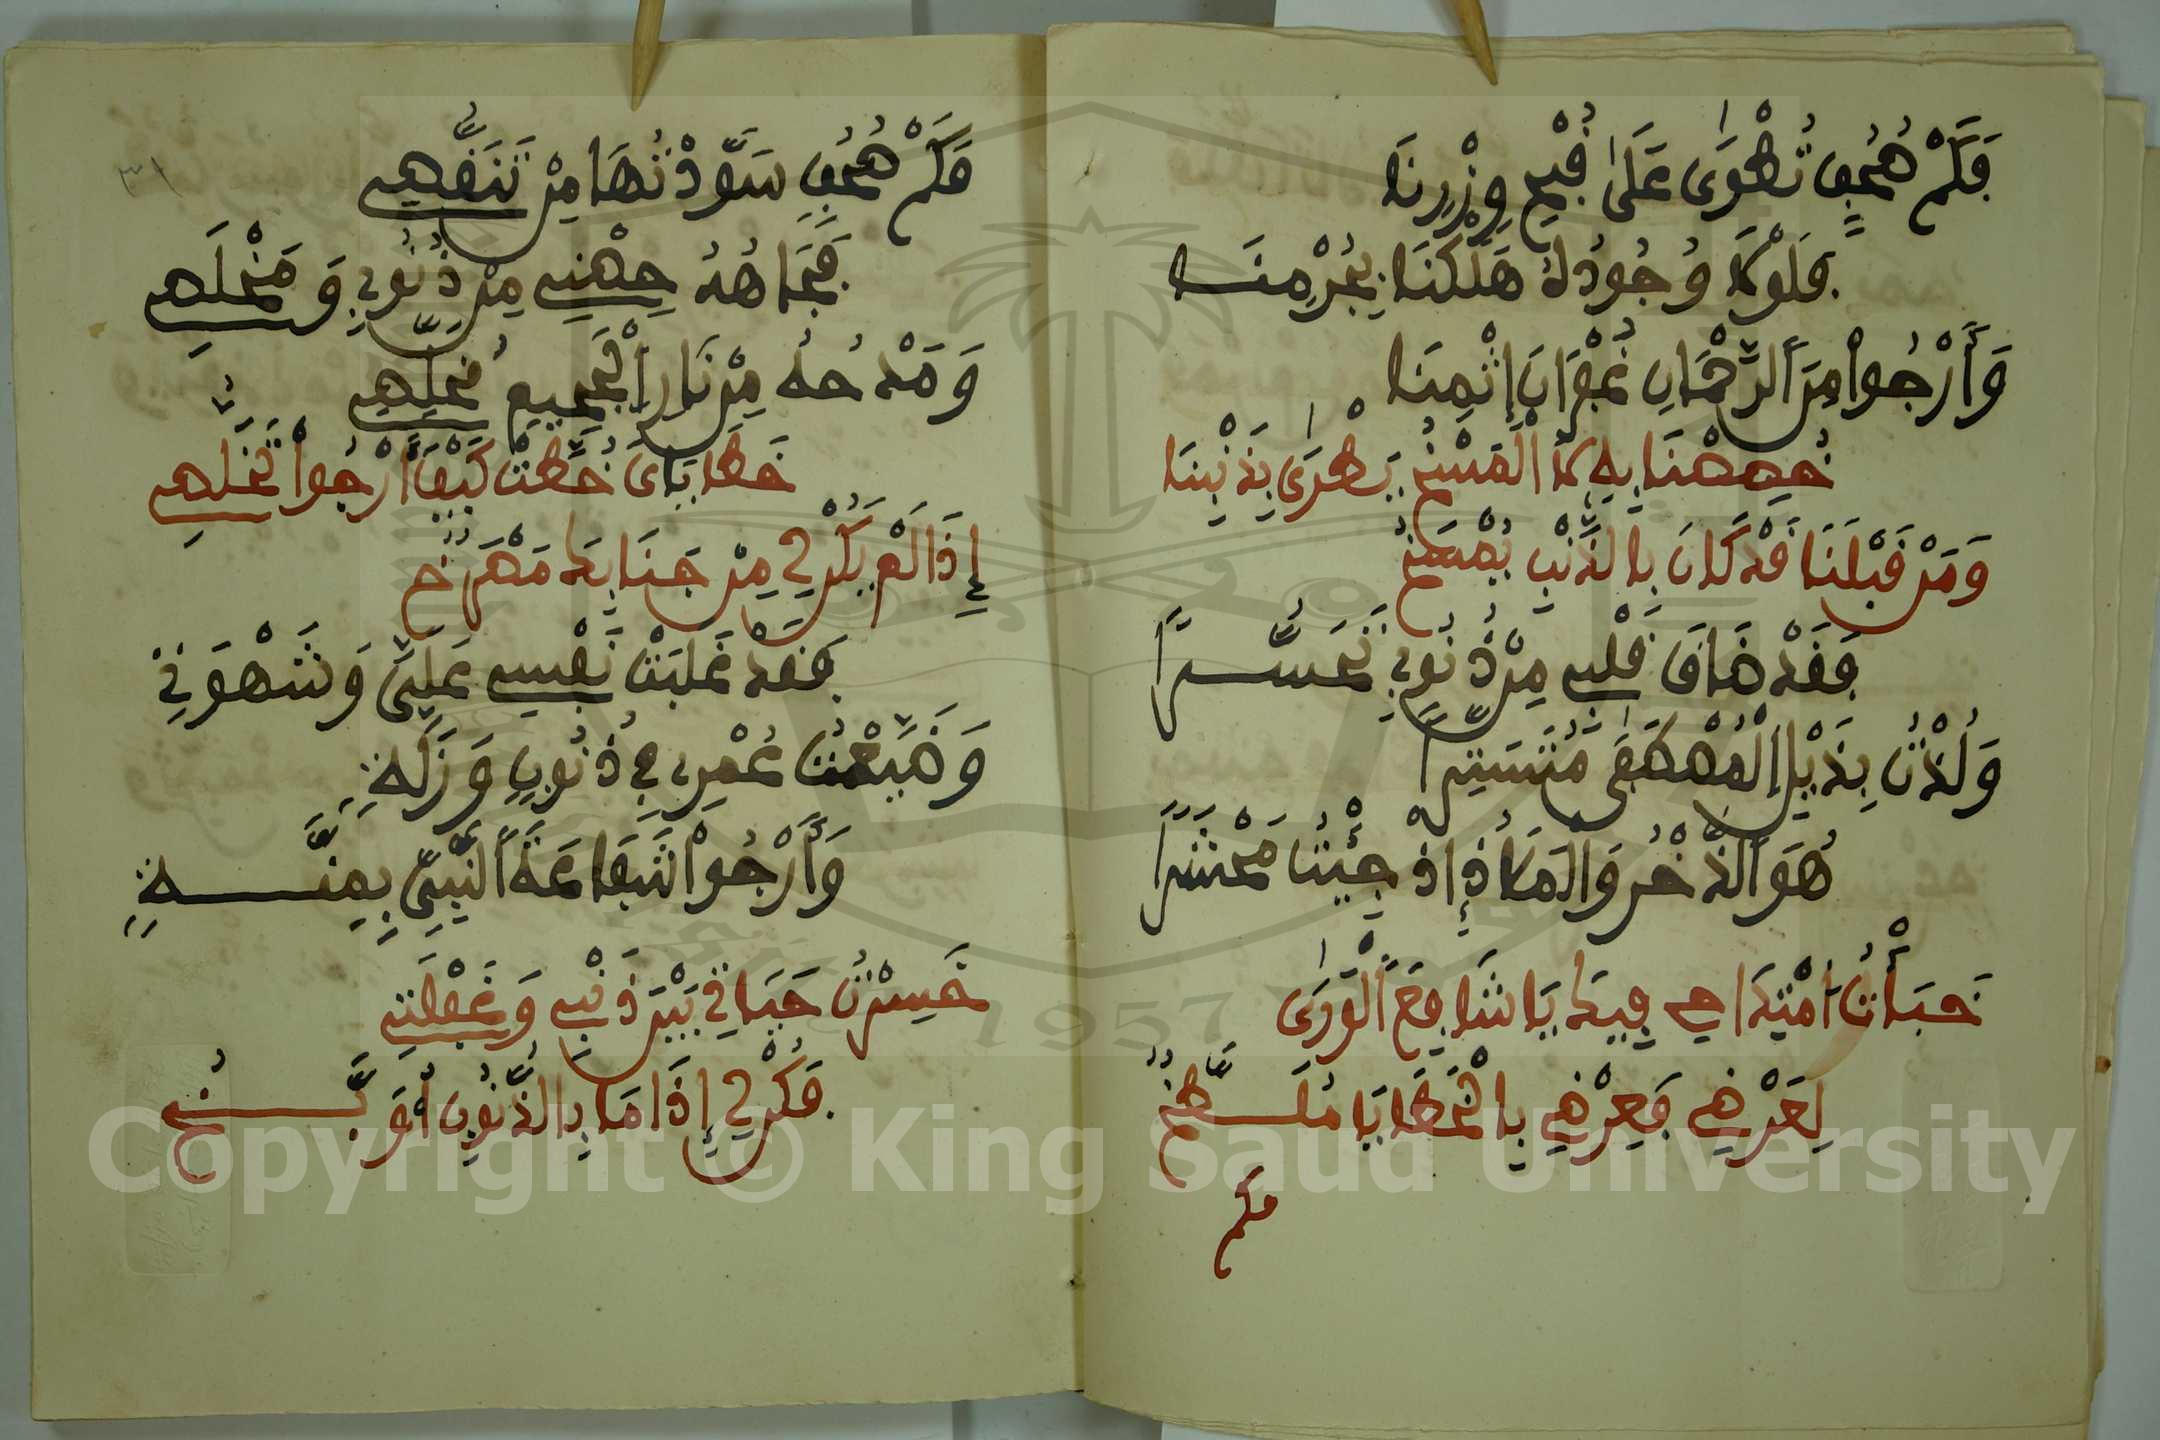 فَكَمْ صُحُفٍ تُطْوَى عَلَى قُبْحِ وِزْرِنَا
فَلَوْلَا وُجُودُكَ هَلَكْنَا بِجُرْمِنَا
وَأَرْجُوا مِنَ الرَّحْمَانِ غُفْرَانَ إِثْمِنَا
خُصِصْنَا بِهِ لَا الْمَسْخُ يَطْرَى بِذَنْبِنَا
وَمَنْ قَبْلَنَا قَدْ كَانَ بِالذَّنْبِ يُمْسَخُ
وَقَدْ ضَاقَ قَلْبِي مِنْ ذُنُوبِي تَحَسُّرًا
وَلُذْتُ بِذَيْلِ الْمُصْطَفَى مُتَسَتِّرًا
هُوَ الذُّخْرُ وَالْمَلَاذُ إِذْ جِئْتُ مَحْشَرًا
خَبَأْتُ امْتِدَاحِي فِيكَ يَا شَافِعَ الْوَرَى
لِعَرْضِي فَعِرْضِي بِالْخَطَايَا مُلَطَّخُ
فكم
فَكَمْ صُحُفٍ سَوَّدْتُهَا مِنْ
فَجَاهُهُ حِصْنِي مِنْ ذُنُوبِي وَ
وَمَدْحُهُ مِنْ نَارِ الْجَحِيمِ
خَطَايَايَ خَطَّتْ كَيْفَ أَرْجُوا
إِذَا لَمْ يَكُنْ لِي مِنْ جَنَابِكَ مَصْرَخُ
فَقَدْ غَلَبَتْ نَفْسِي عَلَيَّ وَشَهْوَتِي
وَضَيَّعْتُ عُمْرِي فِي ذُنُوبٍ وَزَلَّةٍ
وَأَرْجُوا شَفَاعَةَ النَّبِيِّ بِمِنَّةٍ
خَسِرْتُ حَيَاتِي بَيْنَ ذَنْبِي وَغَفْلَتِي
فَكُنْ لِي إِذَا مَا بِالذُّنُوبِ أُوَبَّخُ
٣١
Copyright © King Saud University
1957